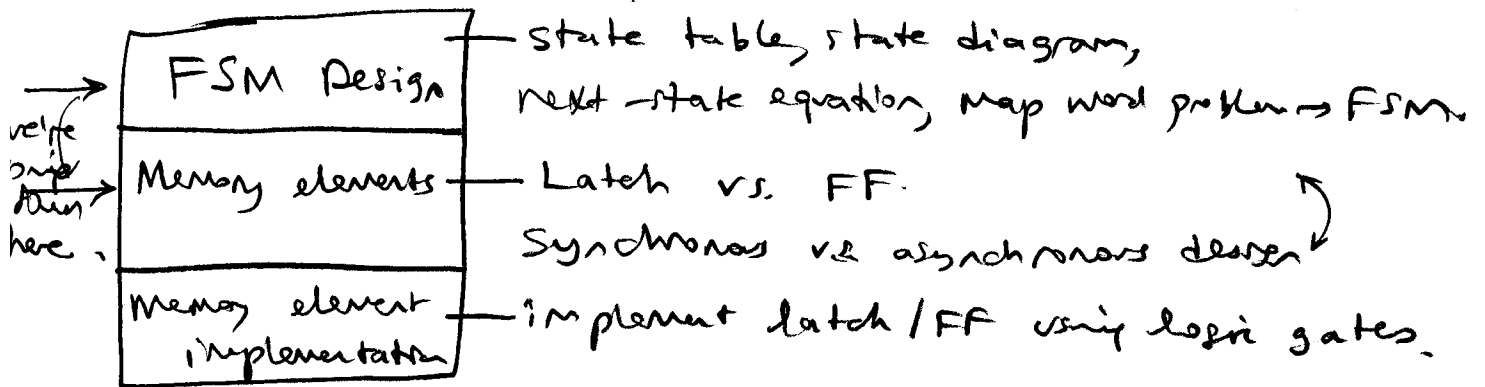 FSM Design
state table, state diagram,
next-state equation, map word problem → FSM.
we're
here.
Memory elements
Latch vs. FF.
Synchronous vs asynchronous design
Memory element
implementation
implement latch/FF using logic gates.